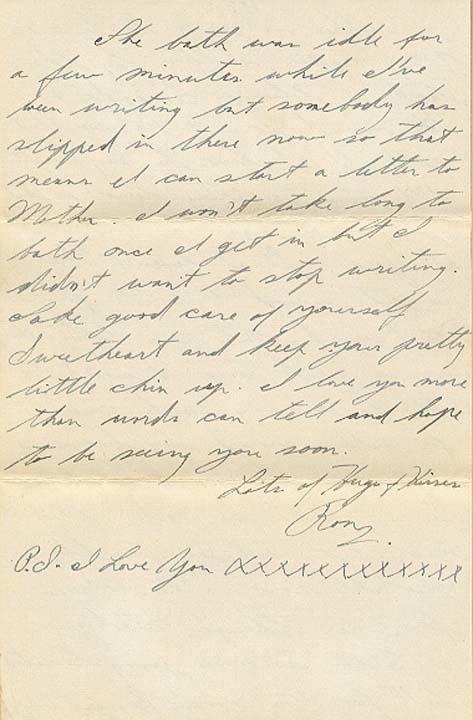 The bath was idle for
a few minutes while I've
been writing but somebody has
slipped in there now so that
means I can start a letter to
Mother. I won't take long to
bath once I get in but I
didn't want to stop writing.
Take good care of yourself
Sweetheart and keep your pretty
little chin up. I love you more
than words can tell and hope
to be seeing you soon.
Lots of Hugs & Kisses
Rony.
P.S. I Love You XXXXXXXXXXXX